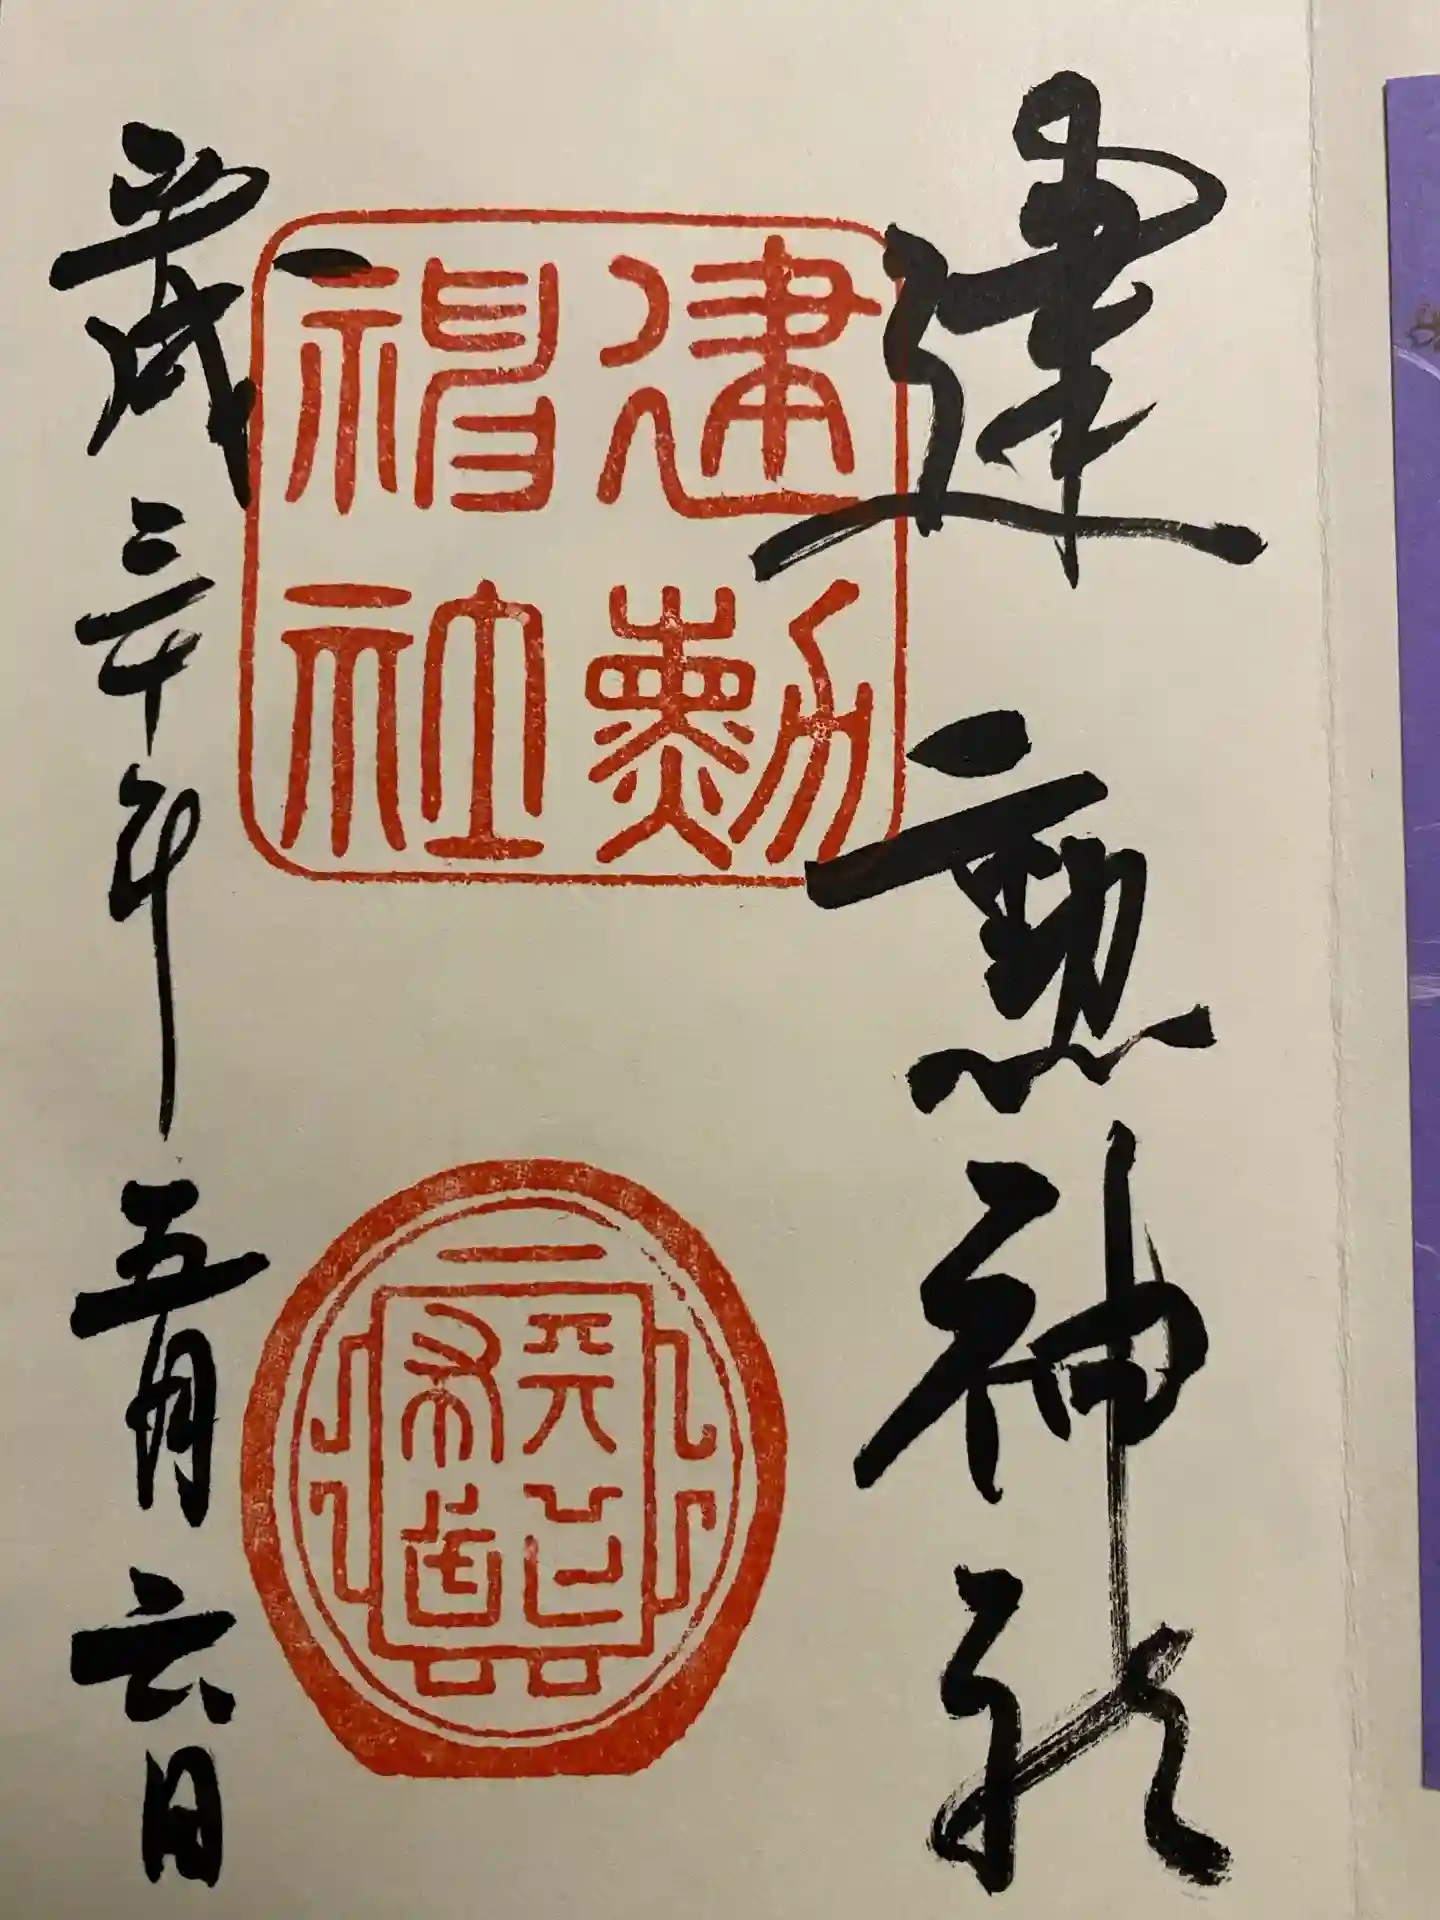 建勲神社
建勲神社
平成三十年五月六日